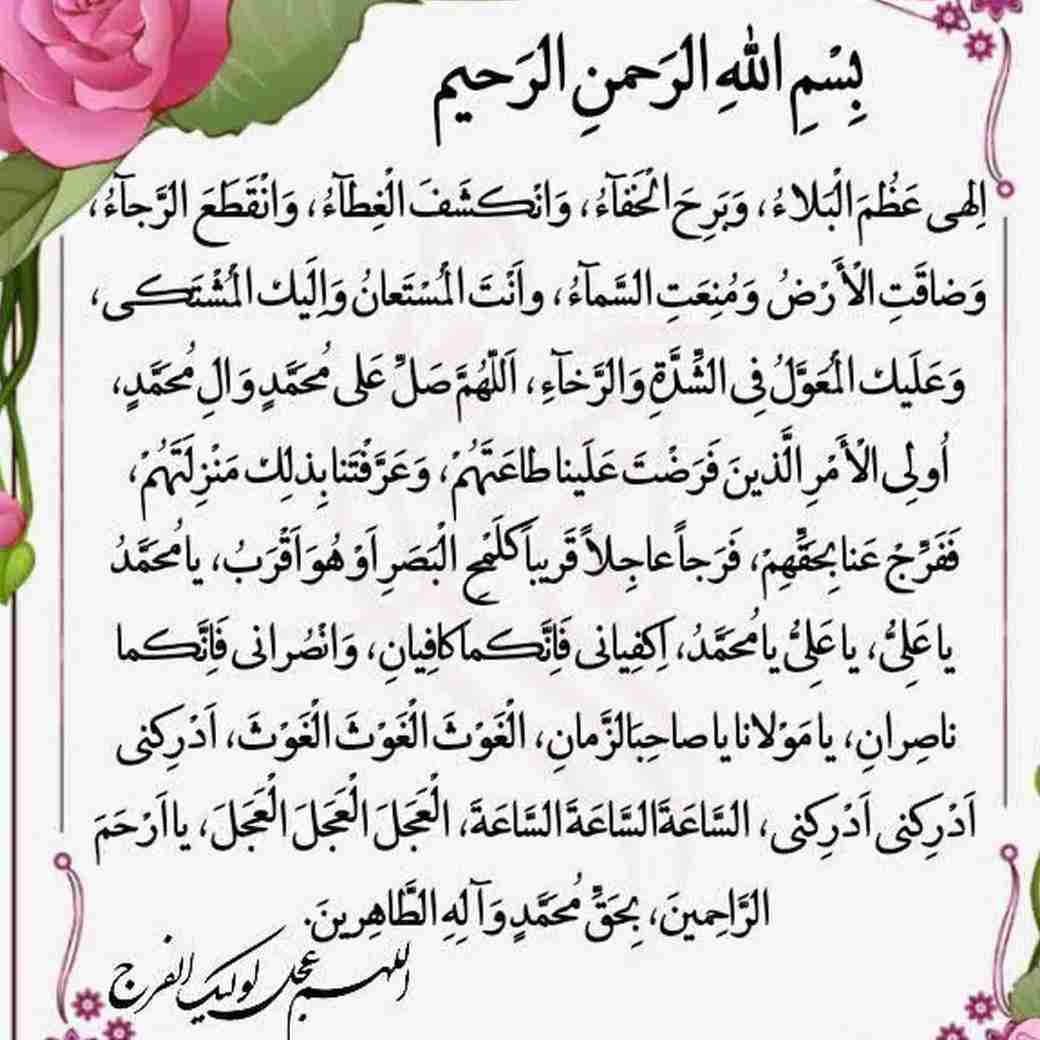 بِسْمِ اللهِ الرَحمنِ الرَحیم
اِلهی عَظُمَ الْبَلاءُ، وَبَرِحَ الْخَفآءُ، وَانْکشَفَ الْغِطآءُ، وَانْقَطَعَ الرَّجآءُ،
وَضاقَتِ الْأَرْضُ وَمُنِعَتِ السَّمآءُ، واَنْتَ الْمُسْتَعانُ وَاِلَیك الْمُشْتَکی،
وَعَلَیك الْمُعَوَّلُ فِی الشِّدَّةِ وَالرَّخآءِ، اَللّهُمَّ صَلِّ عَلی مُحَمَّدٍ وَالِ مُحَمَّدٍ،
اُولِی الْأَمْرِ الَّذینَ فَرَضْتَ عَلَینا طاعَتَهُمْ، وَعَرَّفْتَنا بِذلِك مَنْزِلَتَهُمْ،
فَفَرِّجْ عَنا بِحَقِّهِمْ، فَرَجاً عاجِلاً قَریباً کلَمْحِ الْبَصَرِ اَوْ هُوَ اَقْرَبُ، یا مُحَمَّدُ
یا عَلِیُّ، یا عَلِیُّ یا مُحَمَّدُ، اِکفِیانی فَاِنَّکما کافِیانِ، وَانْصُرانی فَاِنَّکما
ناصِرانِ، یا مَوْلانا یا صاحِبَ الزَّمانِ، الْغَوْثَ الْغَوْثَ الْغَوْثَ، اَدْرِکنی
اَدْرِکنی اَدْرِکنی، السَّاعَةَ السَّاعَةَ السَّاعَةَ، الْعَجَلَ الْعَجَلَ الْعَجَلَ، یا اَرْحَمَ
الرَّاحِمینَ، بِحَقِّ مُحَمَّدٍ وَآلِهِ الطَّاهِرینَ.
اللهم عجل لولیک الفرج